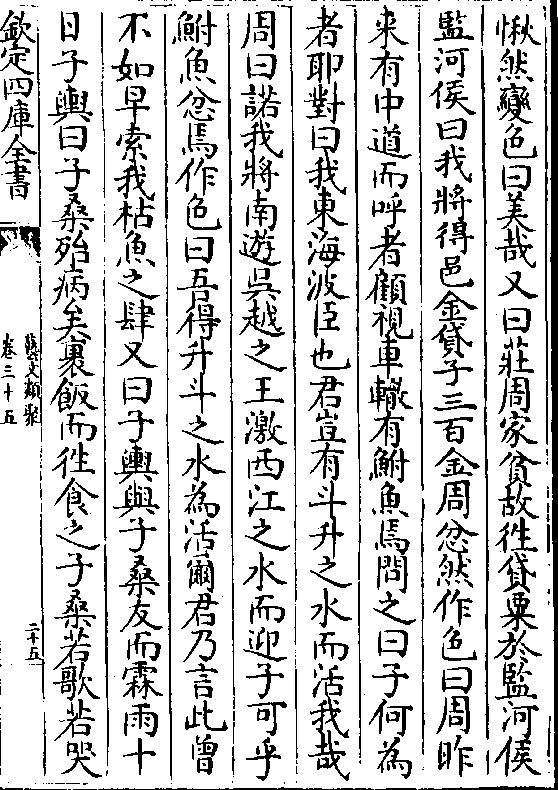 愀然變色曰美哉又曰莊周家貧故往貸粟於監河侯
監河侯曰我將得邑金貸子三百金周忿然作色曰周昨
来有中道而呼者顧視車轍有鮒魚焉問之曰子何為
者耶對曰我東海波臣也君豈有斗升之水而活我哉
周曰諾我將南遊吳越之王激西江之水而迎子可乎
鮒魚忿焉作色曰吾得升斗之水為活爾君乃言此曾
不如早索我枯魚之肆又曰子輿與子桑友而霖雨十
日子輿曰子桑殆病矣裹飯而往食之子桑若歌若哭
欽定四庫全書
藝文類聚
卷三十五
二十五